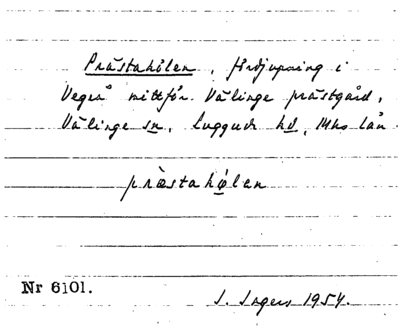 Prästahölen, fördjupning i
Vegeå mittför Välinge prästgård,
Välinge sn, Luggude hd, Mhs län
præstahølen
Nr 6101.
I. Ingers 1954.